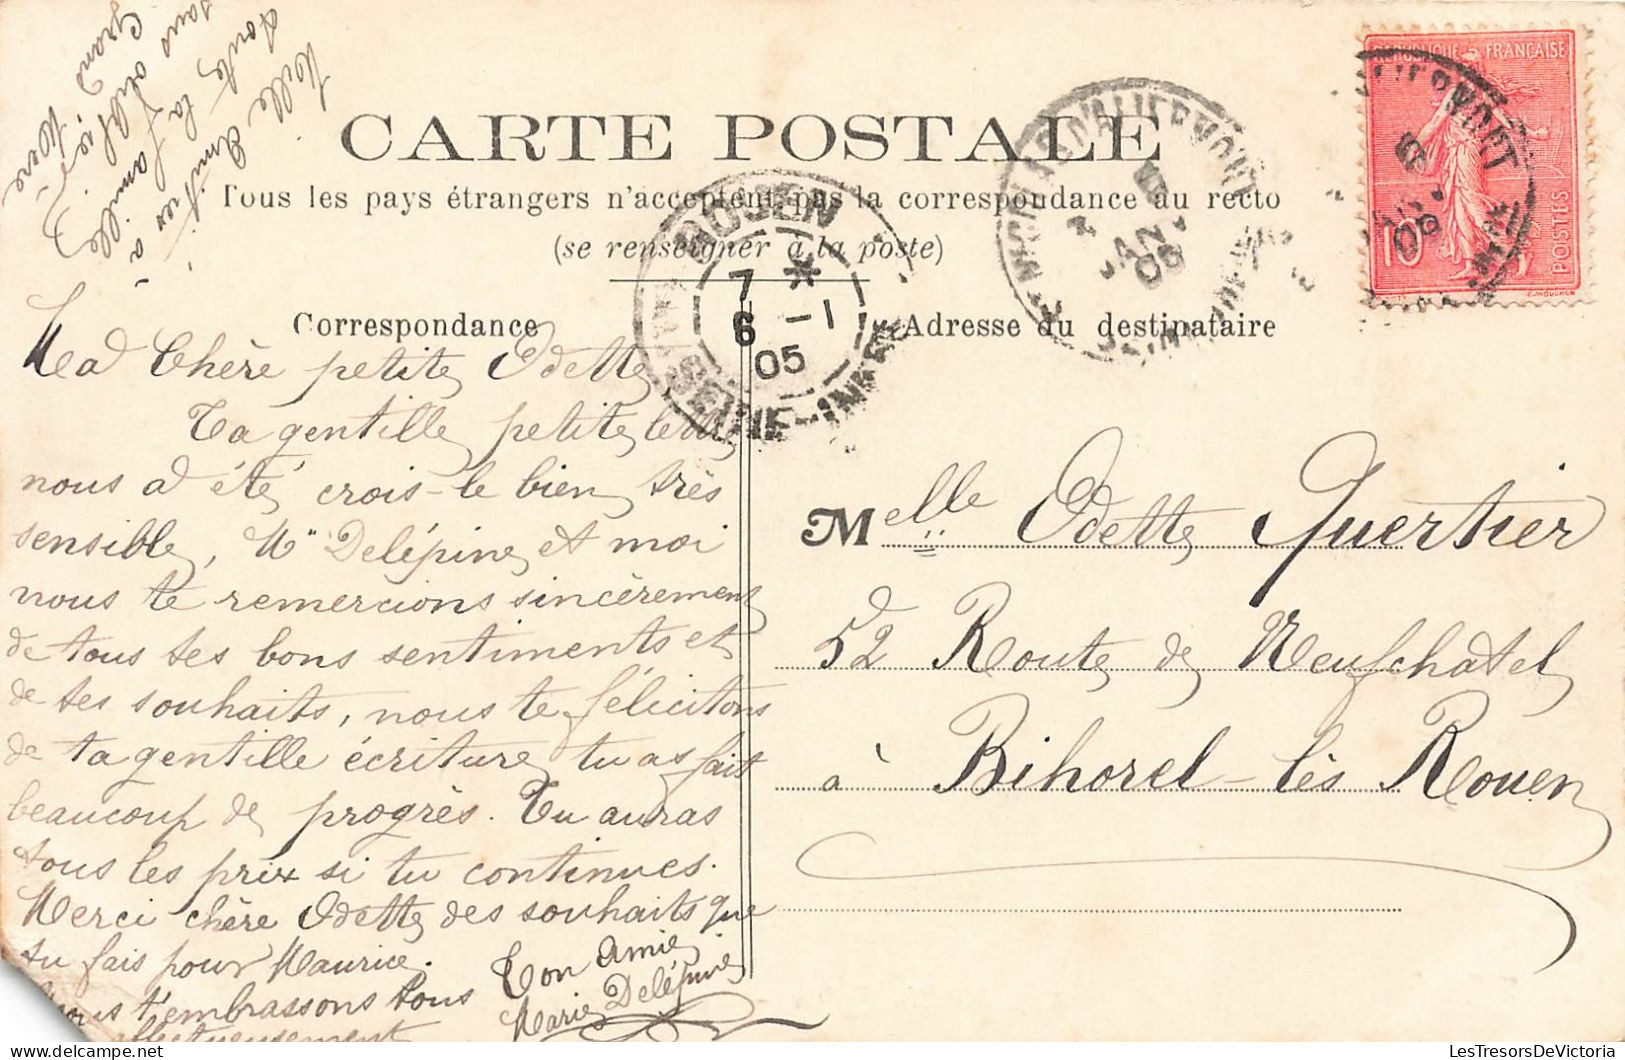 Mille Amitiés à
toute la famille
sans oublier
Grand Mère
CARTE POSTALE
Tous les pays étrangers n'acceptent pas la correspondance au recto
(se renseigner à la poste)
Correspondance
Adresse du destinataire
RÉPUBLIQUE FRANÇAISE
10
POSTES
E. MOUCHON
ROUEN
7 * 
6 -1
05
SEINE-INFRE
ST NICOLAS D'ALIERMONT
JANV
05
Ma Chère petite Odette
Ta gentille petite lettre
nous a été crois-le bien très
sensible, Mr Delépine et moi
nous te remercions sincèrement
de tous tes bons sentiments et
de tes souhaits, nous te félicitons
de ta gentille écriture tu as fait
beaucoup de progrès. Tu auras
tous les prix si tu continues.
Merci chère Odette des souhaits que
tu fais pour Maurice.
Nous t'embrassons tous
affectueusement
Ton Amie
Marie Delépine
Melle Odette Quertier
52 Route de Neufchatel
à Bihorel-lès Rouen
LesTresorsDeVictoria